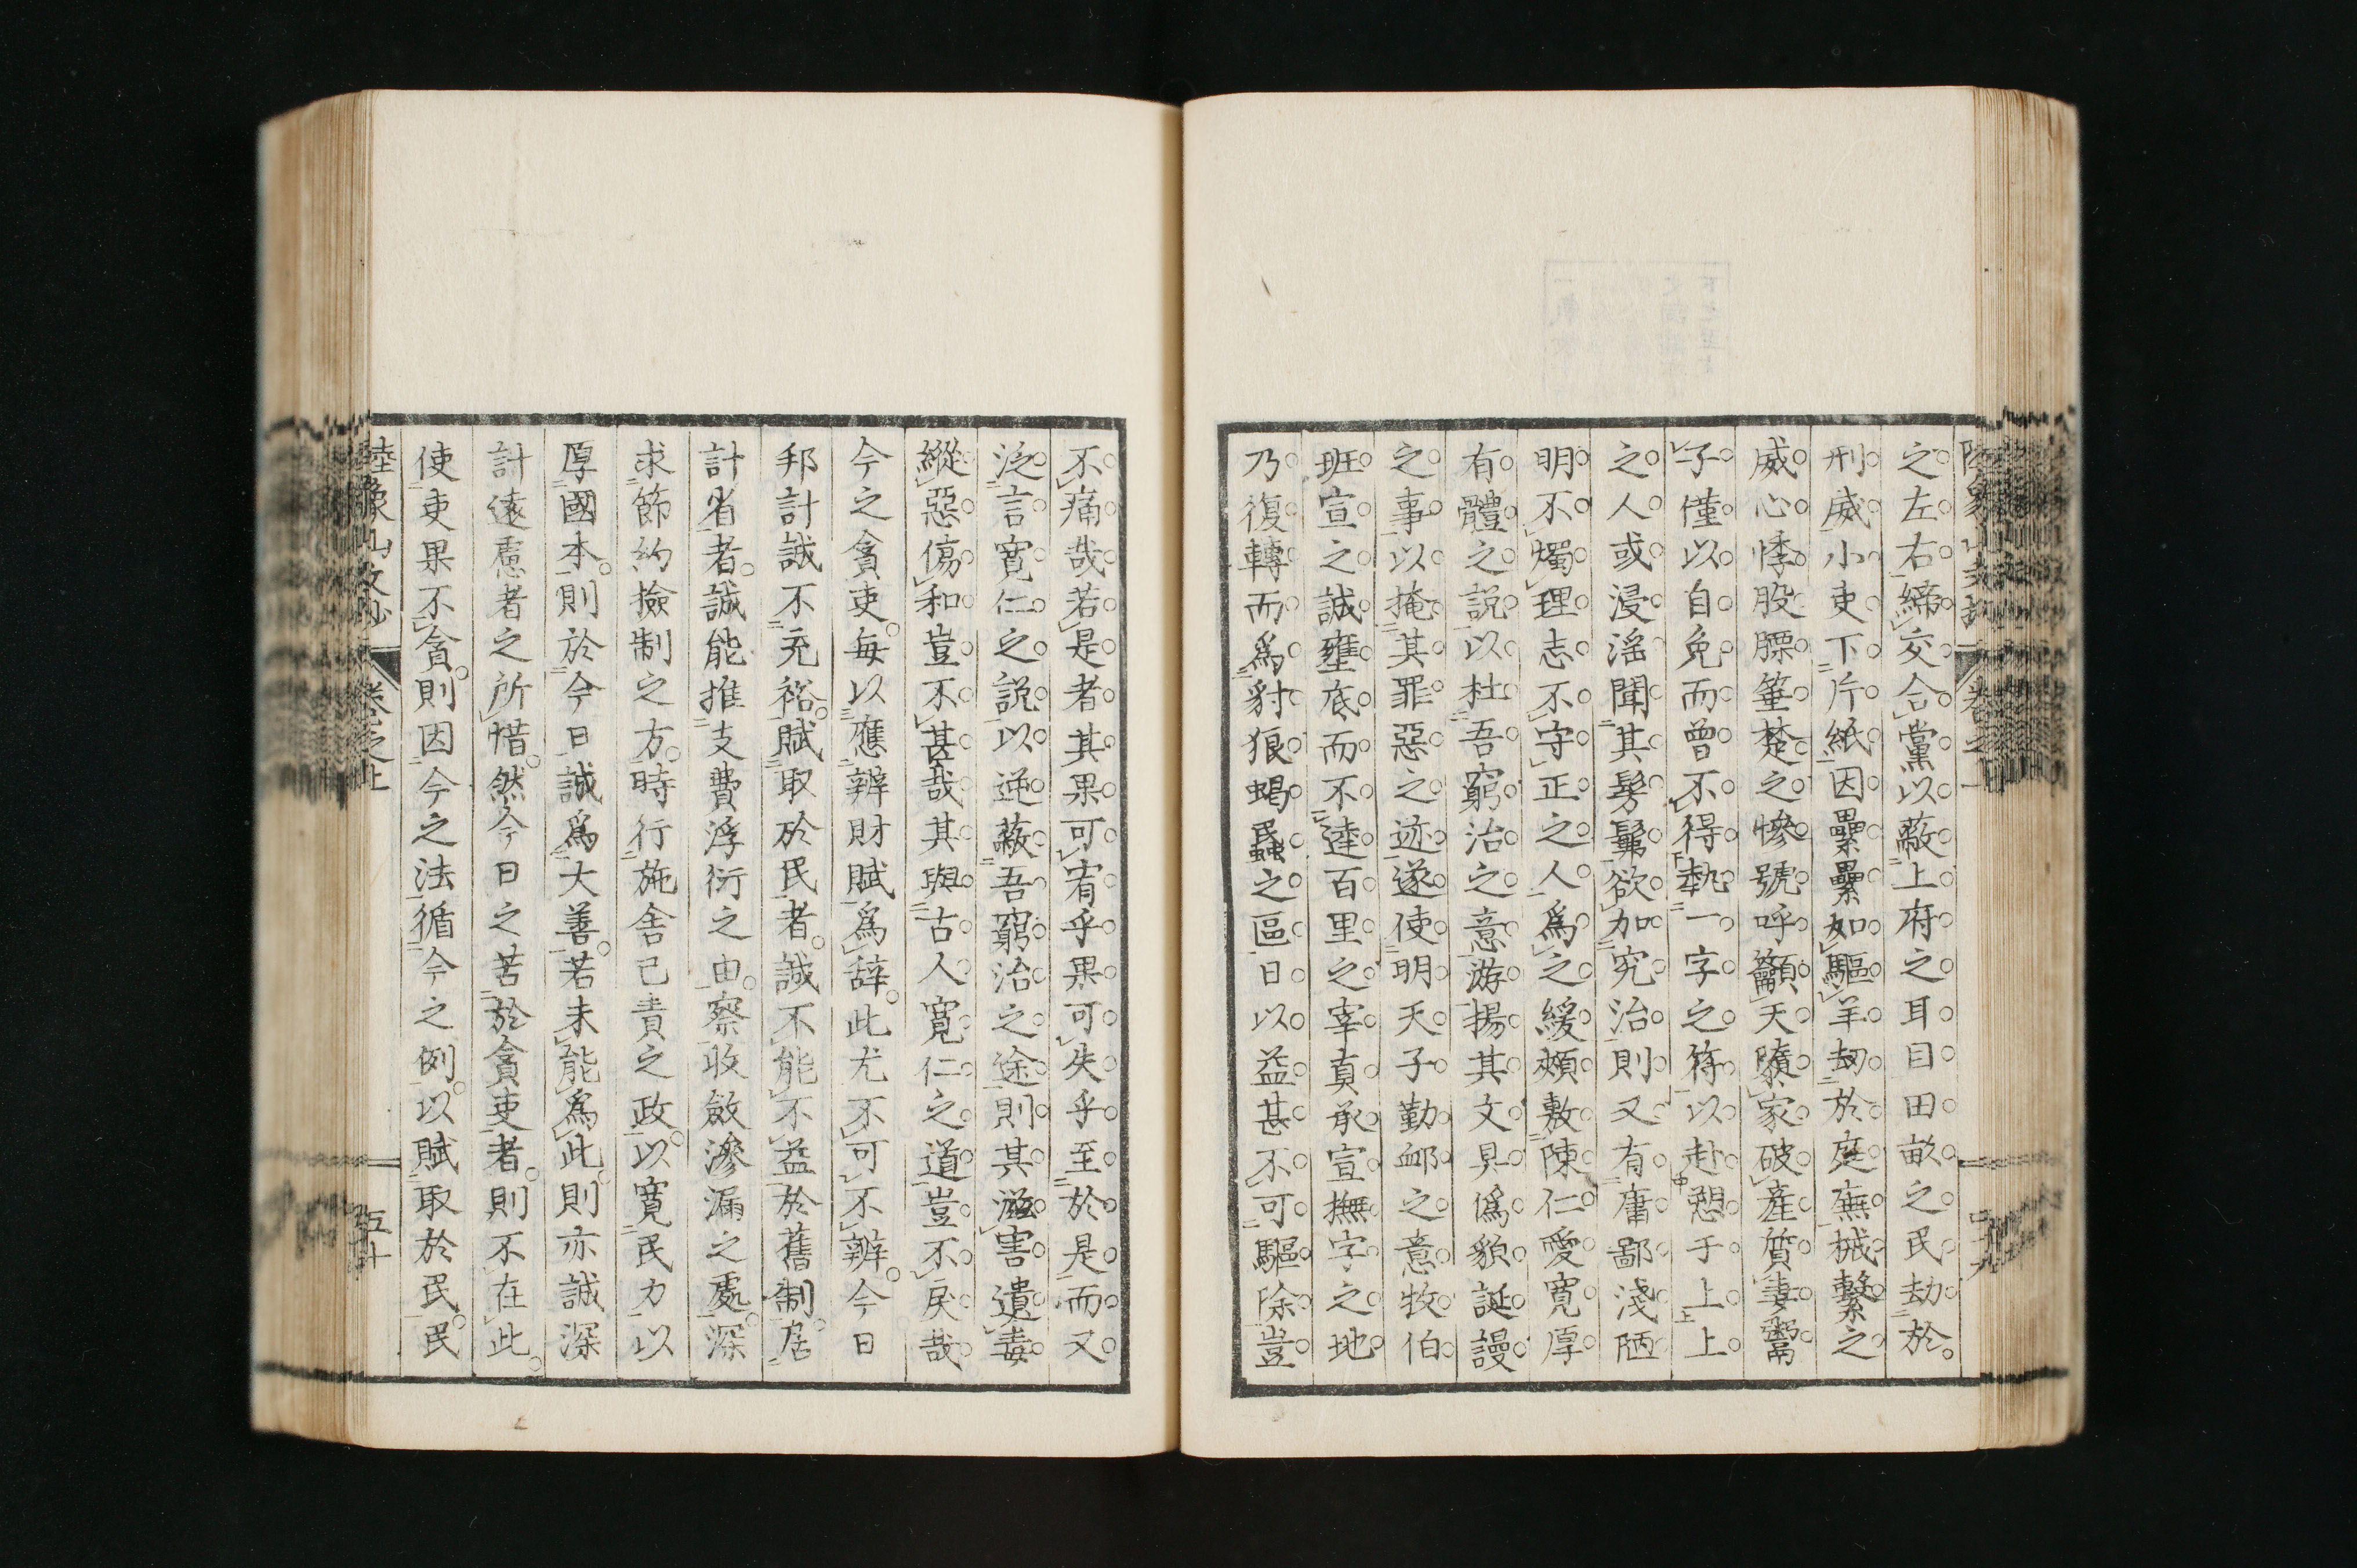 之左右締交合黨以蔽上府之耳目田畝之民劫於
刑威小吏下片紙因纍纍如驅羊劫於庭廡械繫之
威心悸股慄箠楚之慘號呼籲天隳家破產質妻鬻
子僅以自免而曾不得執一字之符以赴愬于上上
之人或浸淫聞其髣髴欲加究治則又有庸鄙淺陋
明不燭理志不守正之人爲之緩頰敷陳仁愛寬厚
有體之說以杜吾窮治之意游揚其文具僞貌誕謾
之事以掩其罪惡之迹遂使明天子勤卹之意牧伯
班宣之誠壅底而不達百里之宰真承宣撫字之地
乃復轉而爲豺狼蝎蟊之區日以益甚不可驅除豈
不痛哉若是者其果可宥乎果可失乎至於是而又
泛言寬仁之說以逆蔽吾窮治之途則其滋害遺毒
縱惡傷和豈不甚哉其與古人寬仁之道豈不戾哉
今之貪吏每以應辨財賦爲辭此尤不可不辨今日
邦計誠不充裕賦取於民者誠不能不益於舊制居
計省者誠能推支費浮衍之由察收斂滲漏之處深
求節約撿制之方時行施舍己責之政以寬民力以
厚國本則於今日誠爲大善若未能爲此則亦誠深
計遠慮者之所惜然今日之苦於貪吏者則不在此
使吏果不貪則因今之法循今之例以賦取於民民
陸象山文抄 卷之上 五十